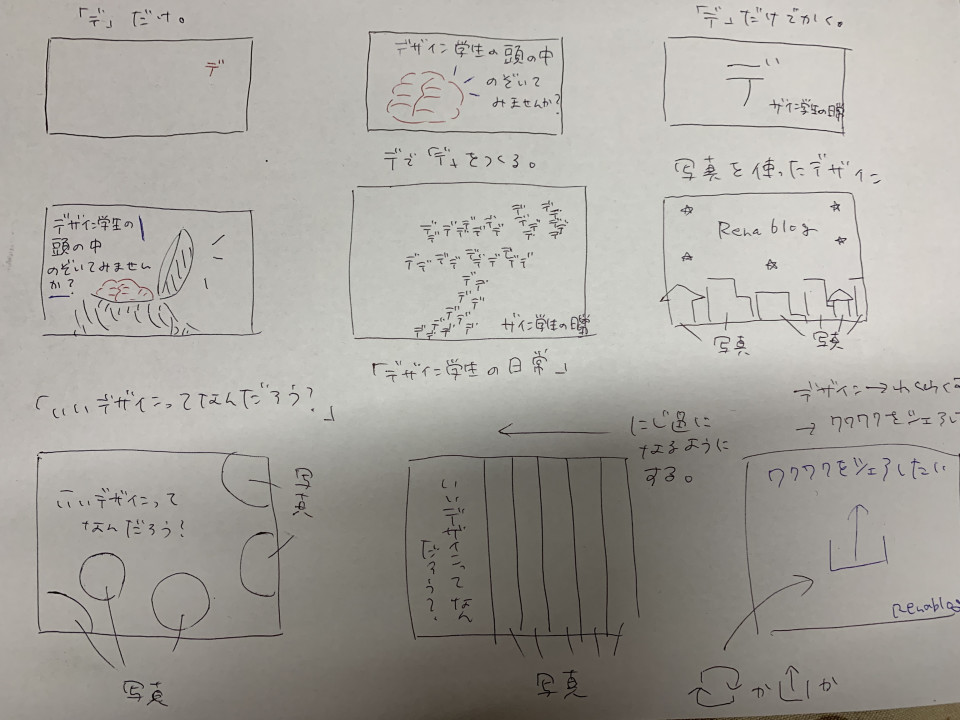 「デ」だけ。
デ
デザイン学生の頭の中
のぞいて
みませんか?
「デ」だけでかく。
デ
ザイン学生の日常
デザイン学生の
頭の中
のぞいてみません
か?
デで「デ」をつくる。
デデデデデデデデ
ザイン学生の日常
「デザイン学生の日常」
写真を使ったデザイン
Rena blog
写真
写真
「いいデザインってなんだろう?」
いいデザインって
なんだろう?
写真
写真
にじ色に
なるように
する。
いいデザインってなん
だろう?
写真
デザイン→わくわく
→ワクワクをシェアし
ワクワクをシェアしたい
Renablog
か
か